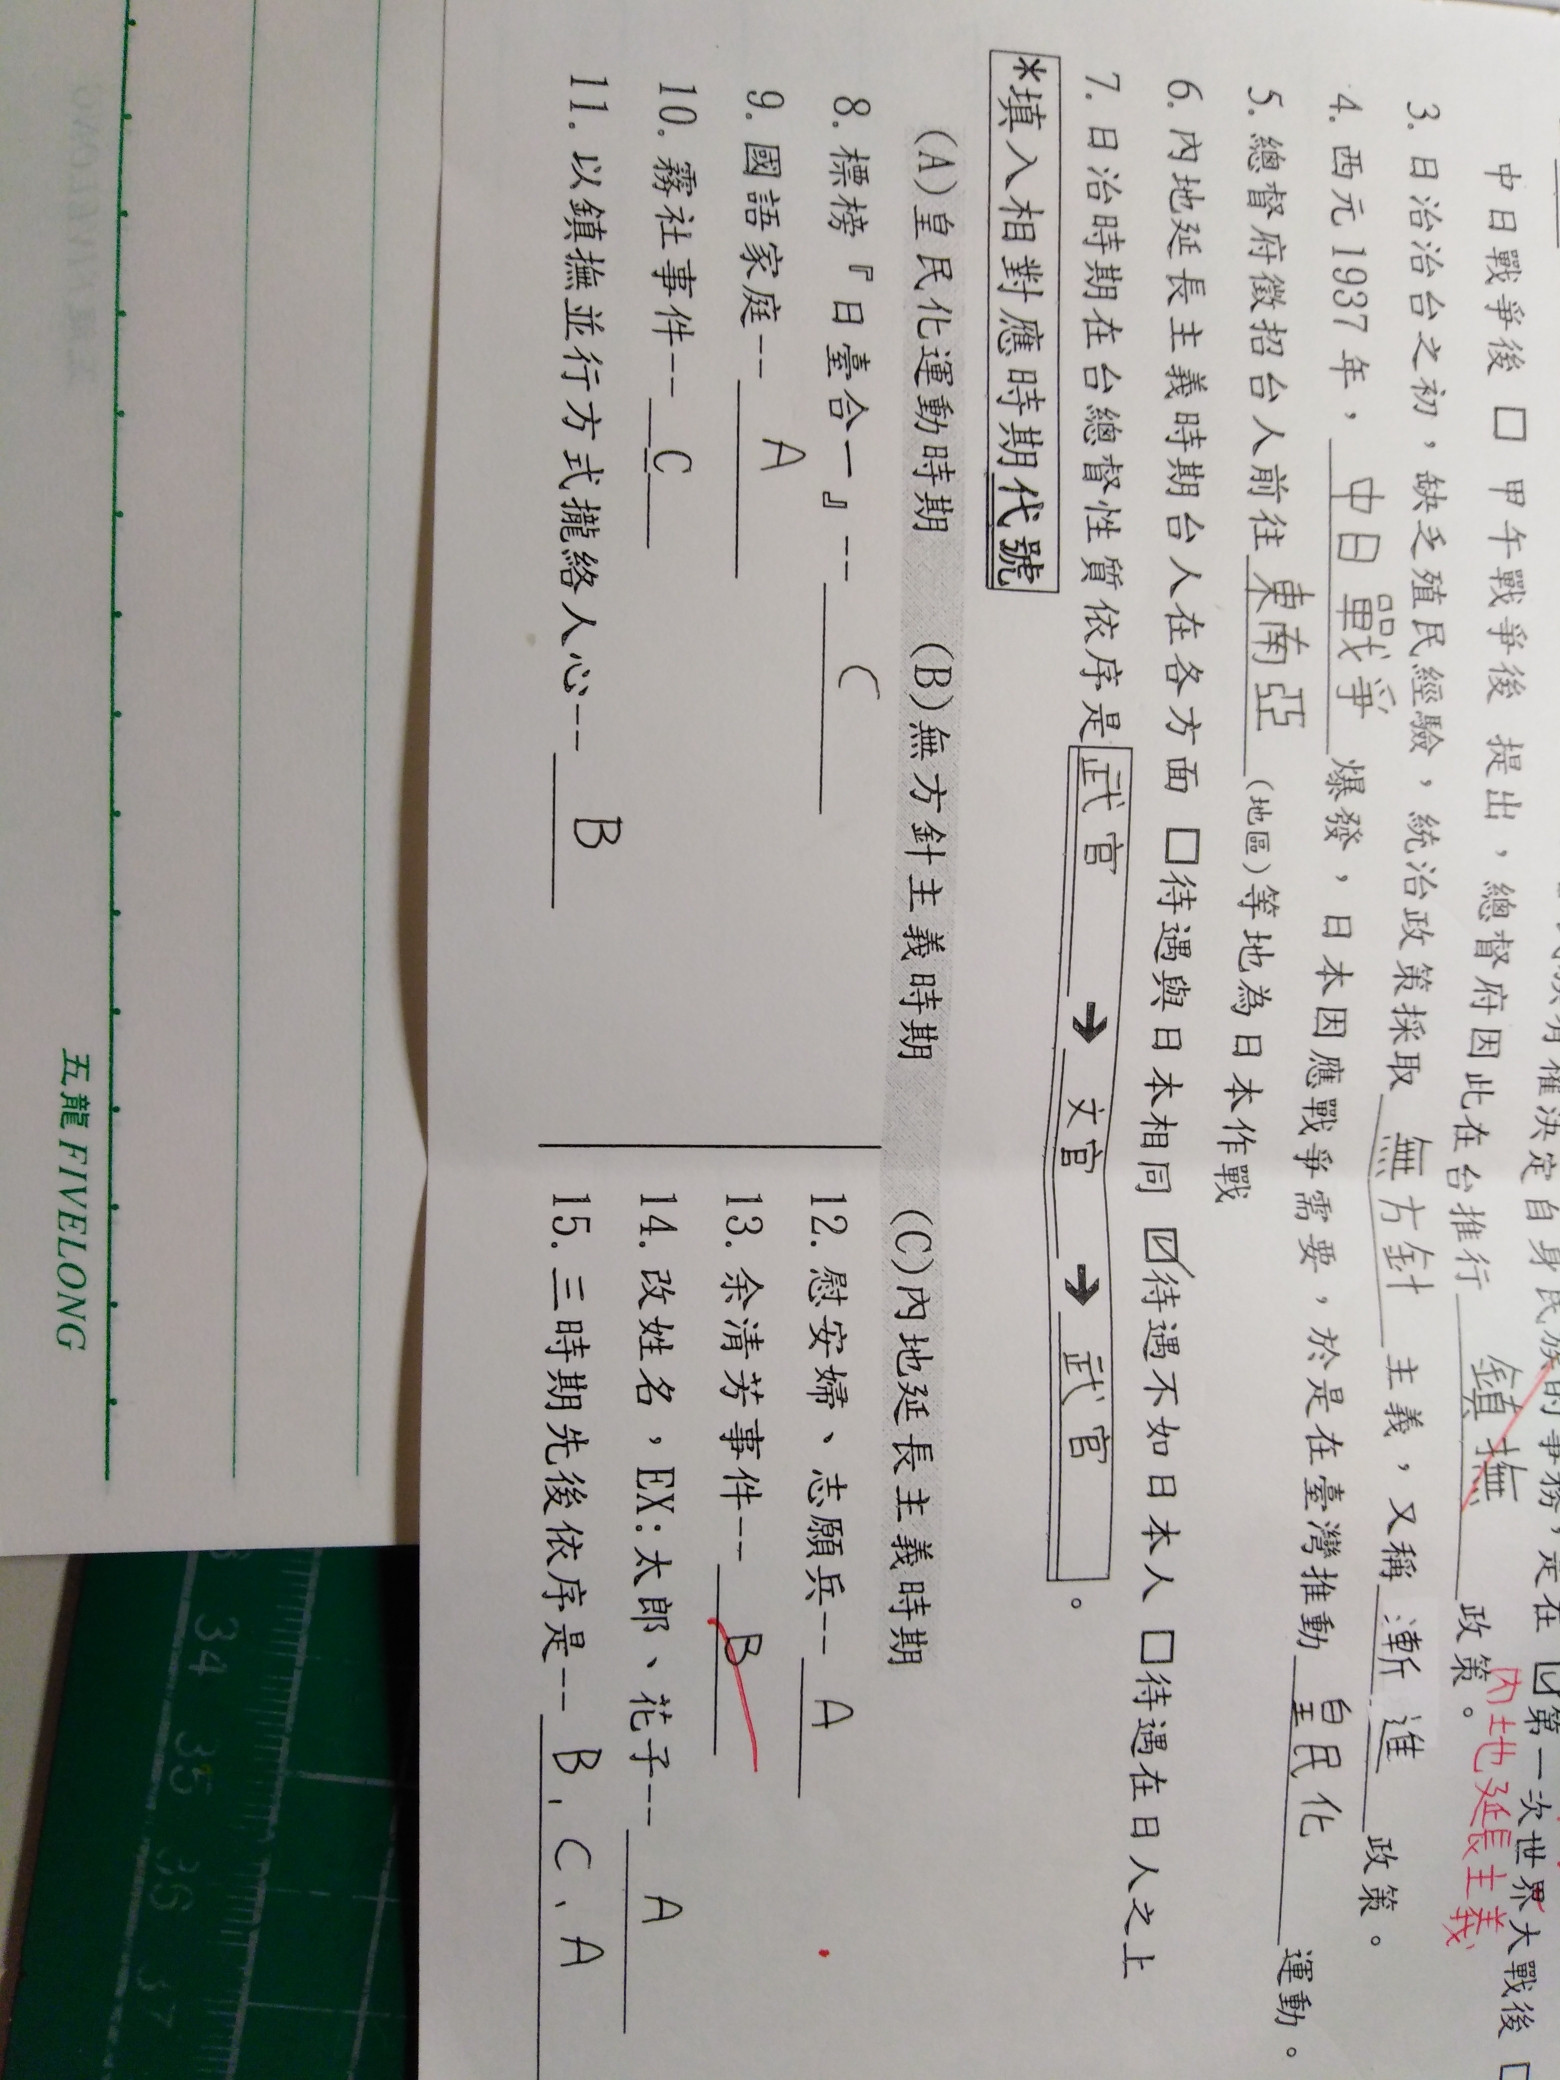 權決定自身民族的事務，是在 ☑第一次世界大戰後 □
中日戰爭後 □ 甲午戰爭後 提出，總督府因此在台推行 鎮撫 政策。
內地延長主義
3.日治治台之初，缺乏殖民經驗，統治政策採取 無方針 主義，又稱 漸進 政策。
4.西元1937年， 中日戰爭 爆發，日本因應戰爭需要，於是在臺灣推動 皇民化 運動。
5.總督府徵招台人前往 東南亞 (地區)等地為日本作戰
6.內地延長主義時期台人在各方面 □待遇與日本相同 ☑待遇不如日本人 □待遇在日人之上
7.日治時期在台總督性質依序是 武官 → 文官 → 武官 。
*填入相對應時期代號
(A)皇民化運動時期 (B)無方針主義時期 (C)內地延長主義時期
8.標榜『日臺合一』-- C
9.國語家庭-- A
10.霧社事件-- C
11.以鎮撫並行方式攏絡人心-- B
12.慰安婦、志願兵-- A
13.余清芳事件-- B
14.改姓名，EX:太郎、花子-- A
15.三時期先後依序是-- B、C、A
五龍 FIVELONG
34 35 36 37